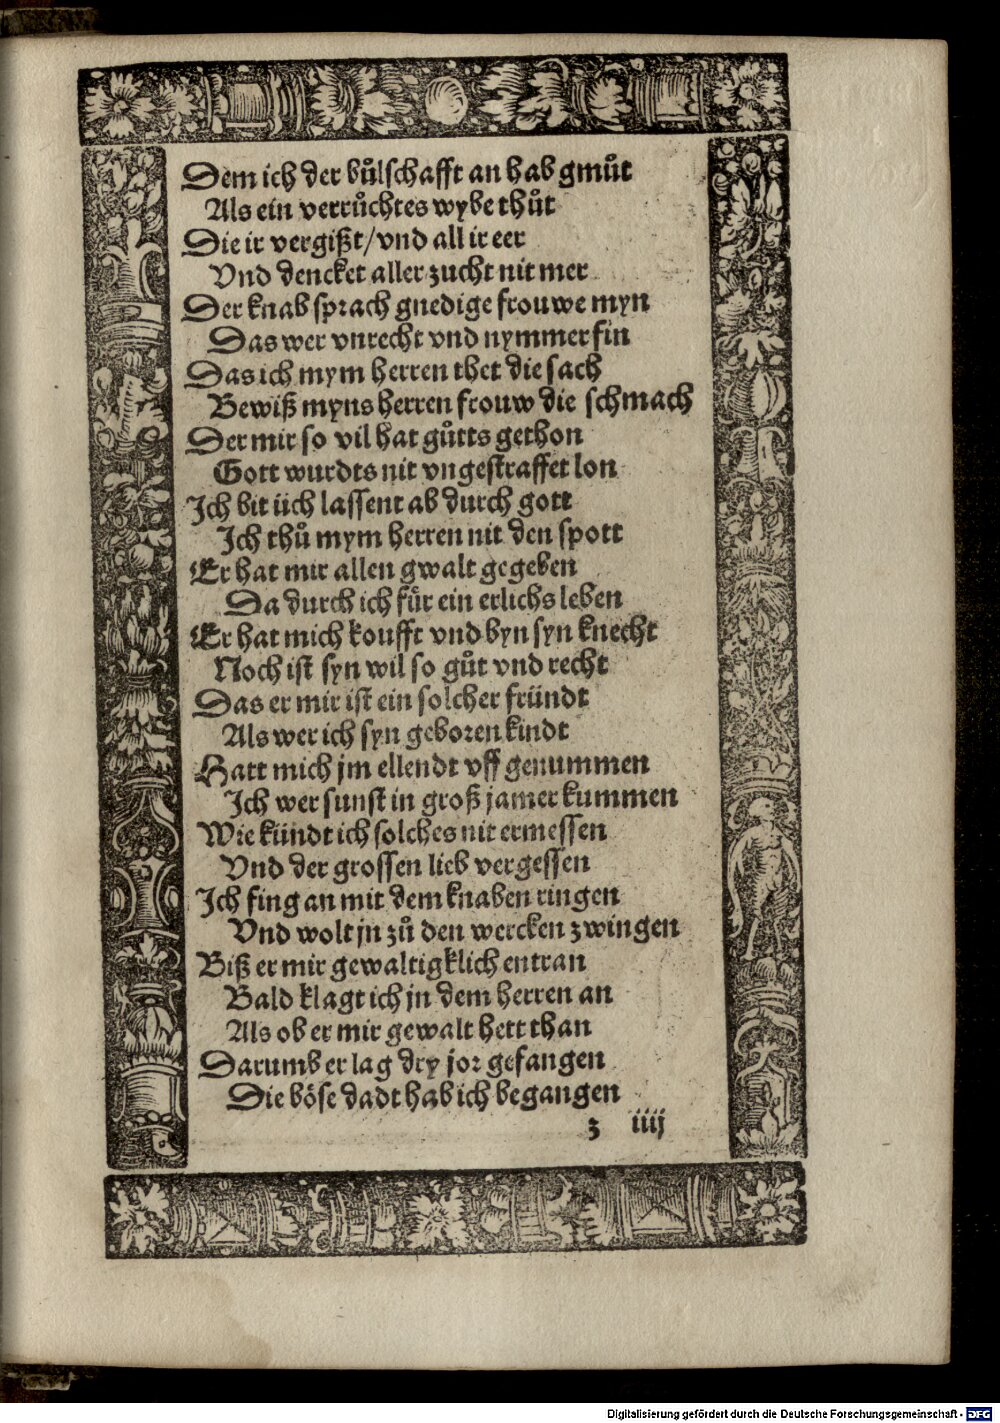 Dem ich der bůlschafft an hab gmůt
Als ein verrůchtes wybe thůt
Die ir vergißt/vnd all ir eer
Vnd dencket aller zucht nit mer
Der knab sprach gnedige frouwe myn
Das wer vnrecht vnd nymmer fin
Das ich mym herren thet die sach
Bewiß myns herren frouw die schmach
Der mir so vil hat gůtts gethon
Gott wurdts nit vngestraffet lon
Ich bit üch lassent ab durch gott
Ich thů mym herren nit den spott
Er hat mir allen gwalt gegeben
Da durch ich für ein erlichs leben
Er hat mich koufft vnd byn syn knecht
Noch ist syn wil so gůt vnd recht
Das er mir ist ein solcher fründt
Als wer ich syn geboren kindt
Hatt mich jm ellendt vff genummen
Ich wer sunst in groß jamer kummen
Wie kündt ich solches nit ermessen
Vnd der grossen lieb vergessen
Ich fing an mit dem knaben ringen
Vnd wolt jn zů den wercken zwingen
Biß er mir gewaltigklich entran
Bald klagt ich jn dem herren an
Als ob er mir gewalt hett than
Darumb er lag dry jor gefangen
Die böse dadt hab ich begangen
z iiij
Digitalisierung gefördert durch die Deutsche Forschungsgemeinschaft - DFG